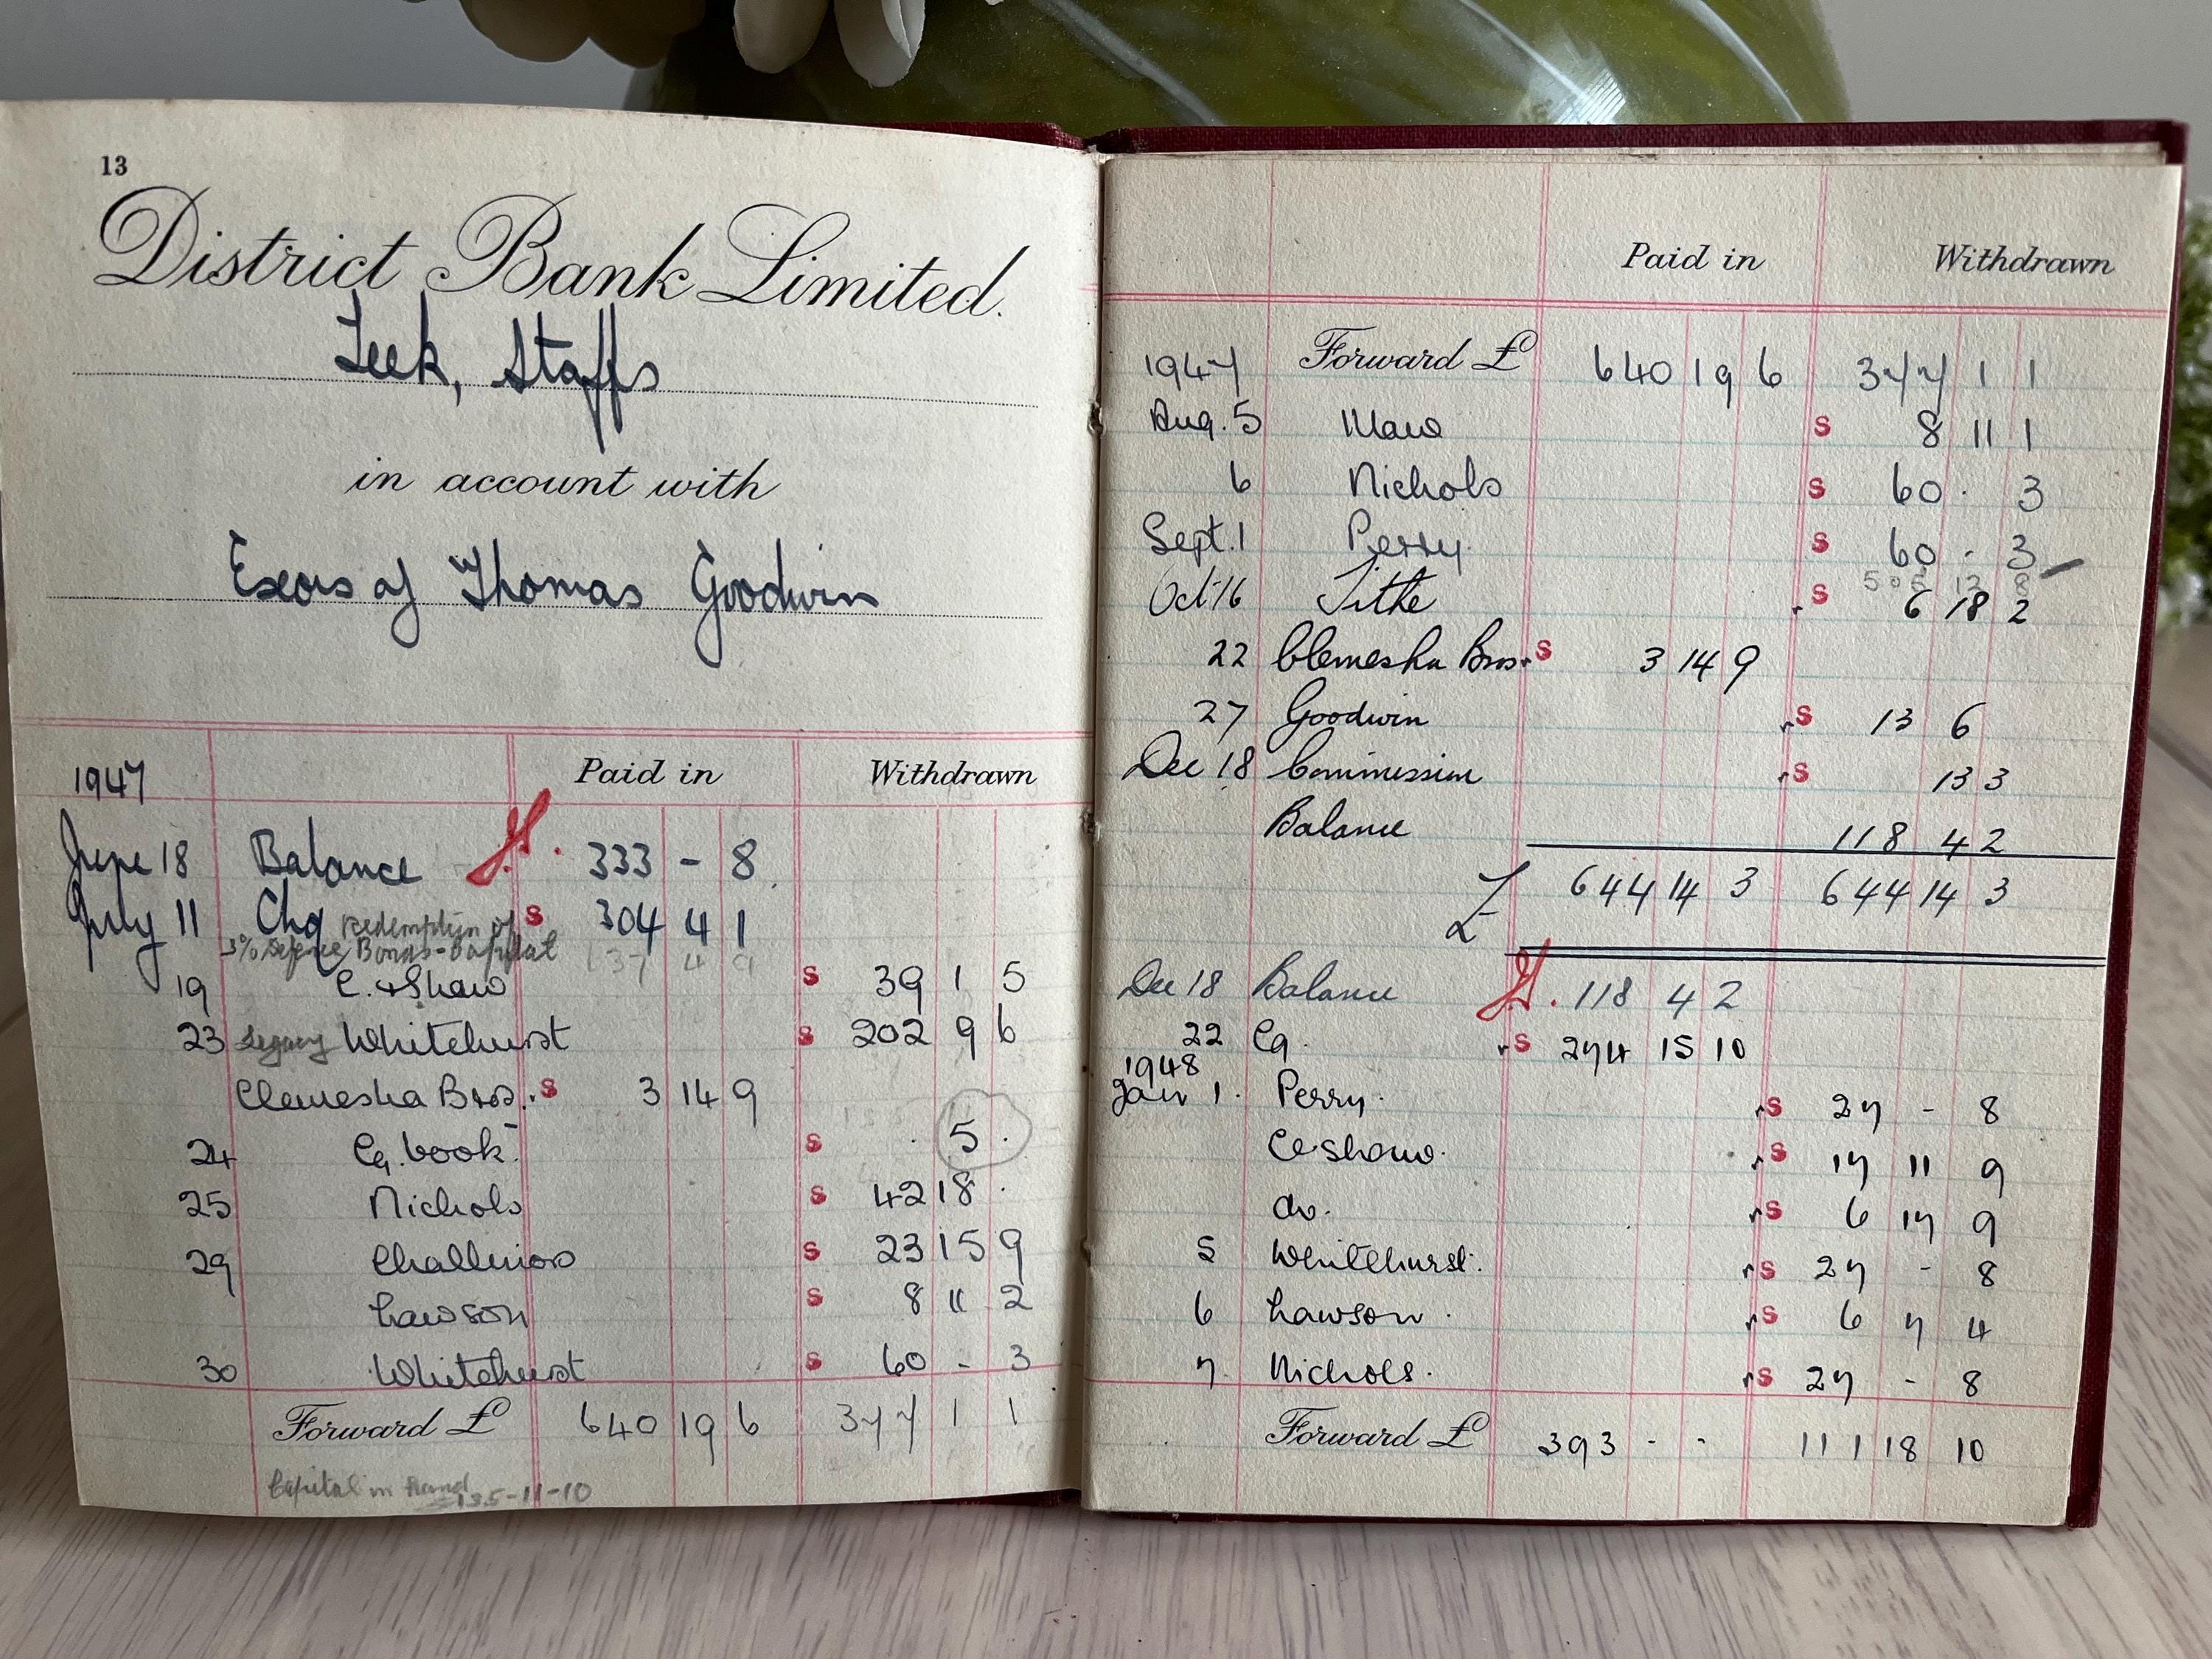 13
District Bank Limited.
Leek, Staffs
in account with
Exors of Thomas Goodwin
1947 Paid in Withdrawn
June 18 Balance 333 - 8
July 11 Chq Redemption of S 304 4 1
3% Defence Bonds - Capital 137 4 9
19 C. & Shaw S 39 1 5
23 Legacy Whitehurst S 202 9 6
Clemesha Bros. S 3 14 9
24 Cq. book S . 5 .
25 Nichols S 42 18 .
29 Challinors S 23 15 9
Lawson S 8 11 2
30 Whitehurst S 60 - 3
Forward £ 640 19 6 377 1 1
Capital in hand 135-11-10
Paid in Withdrawn
1947 Forward £ 640 19 6 377 1 1
Aug. 5 S 8 11 1
6 Nichols S 60 . 3
Sept. 1 Perry S 60 . 3
505 13 8
Oct 16 Tithe S 6 18 2
22 Clemesha Bros. S 3 14 9
27 Goodwin S 13 6
Dec 18 Commission S 13 3
Balance 118 4 2
£ 644 14 3 644 14 3
Dec 18 Balance 118 4 2
22 Cq. S 274 15 10
1948
Jan 1. Perry. S 27 - 8
C & Shaw. S 17 11 9
do. S 6 17 9
5 Whitehurst. S 27 - 8
6 Lawson. S 6 7 4
7. Nichols. S 27 - 8
Forward £ 393 - - 111 18 10